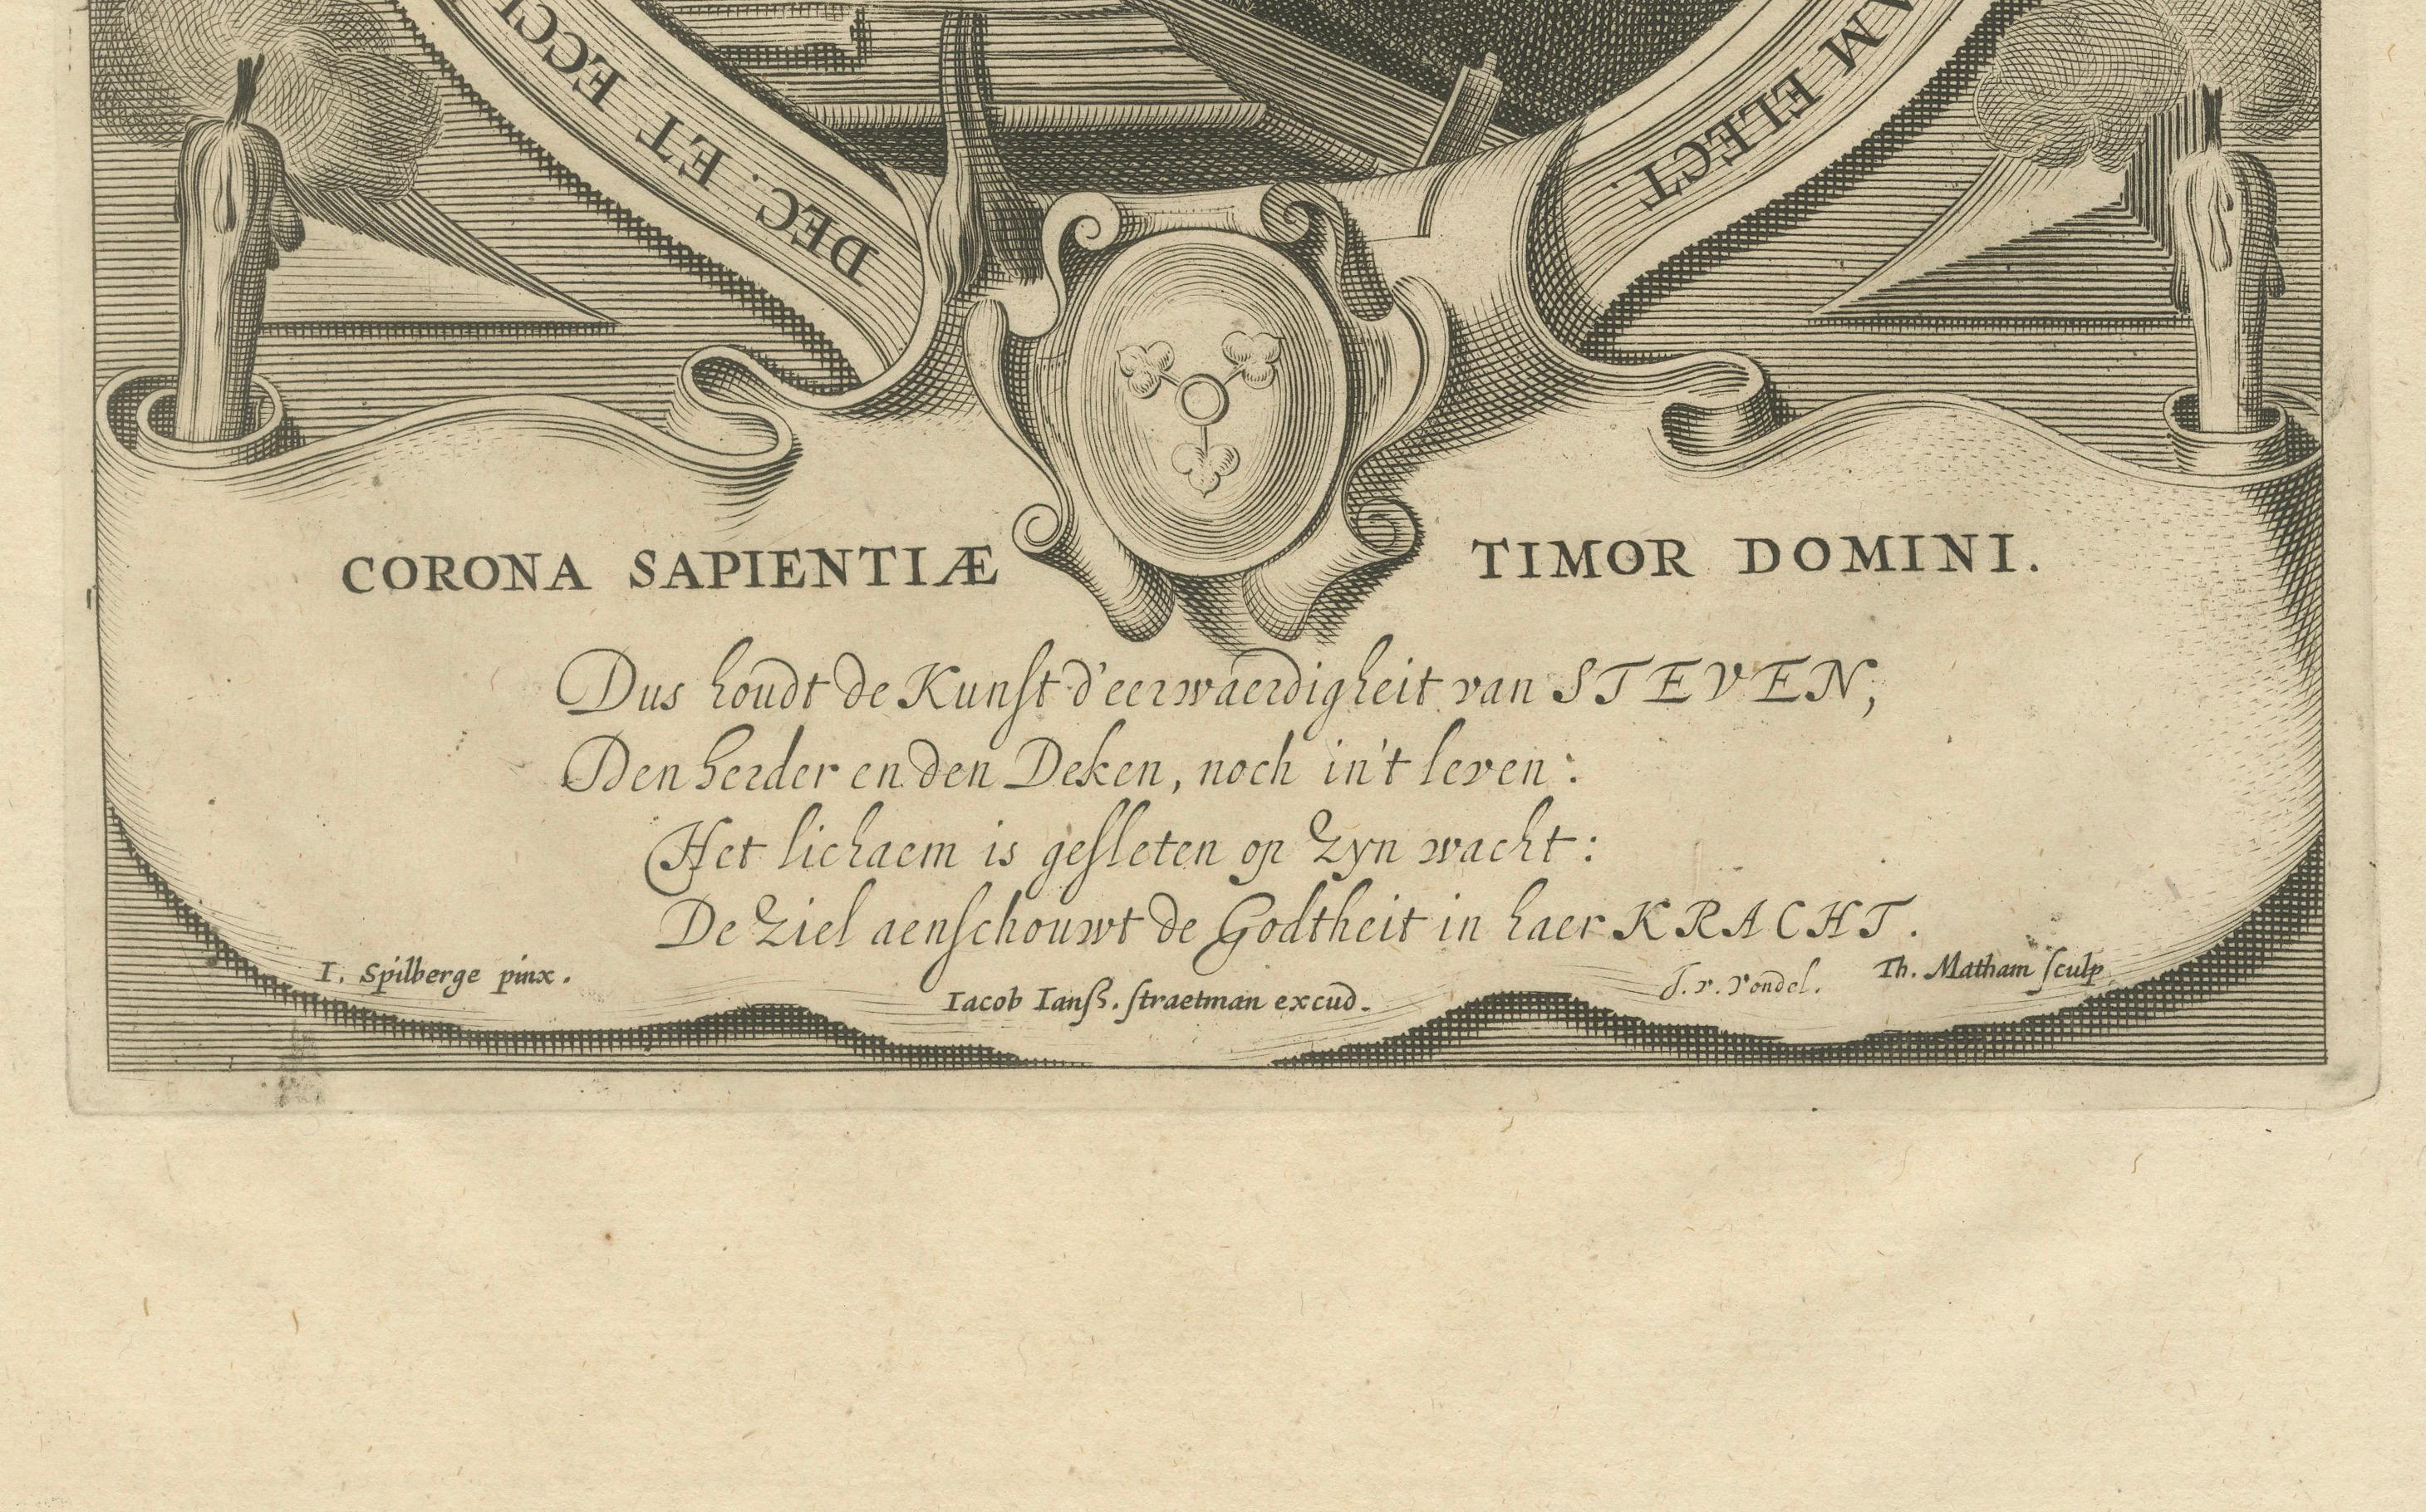 DEC. ET ECCL
AM ELECT.
CORONA SAPIENTIÆ TIMOR DOMINI.
Dus houdt de Kunſt d'eerwaerdigheit van STEVEN,
Den herder en den Deken, noch in't leven:
Het lichaem is geſleten op zyn wacht:
De ziel aenſchouwt de Godtheit in haer KRACHT.
I. Spilberge pinx.
Iacob Ianſz. ſtraetman excud.
J. v. Vondel.
Th. Matham ſculp